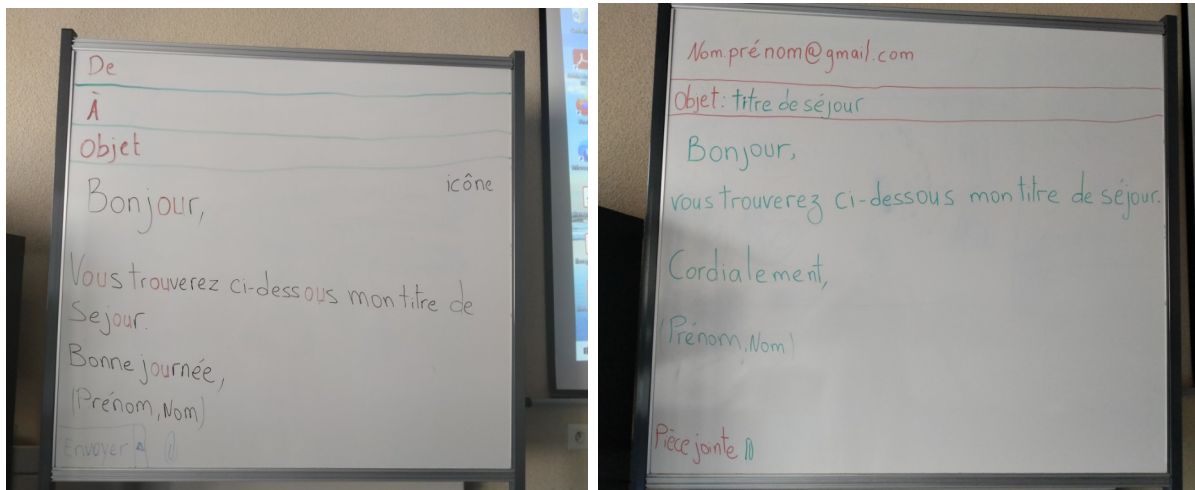 De
À
Objet
icône
Bonjour,
Vous trouverez ci-dessous mon titre de
Sejour.
Bonne journée,
(Prénom, Nom)
Envoyer
Nom.prénom@gmail.com
Objet: titre de séjour
Bonjour,
vous trouverez ci-dessous mon titre de séjour.
Cordialement,
(Prénom, Nom)
Pièce jointe